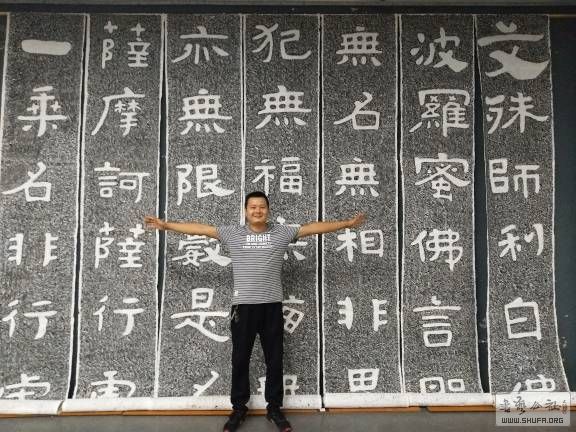 文殊師利白佛
波羅蜜佛言般
無名無相非思
犯無福無晦無
亦無限數是名
薩摩訶薩行處
一乘名非行處
BRIGHT
書藝公社
WWW.SHUFA.ORG